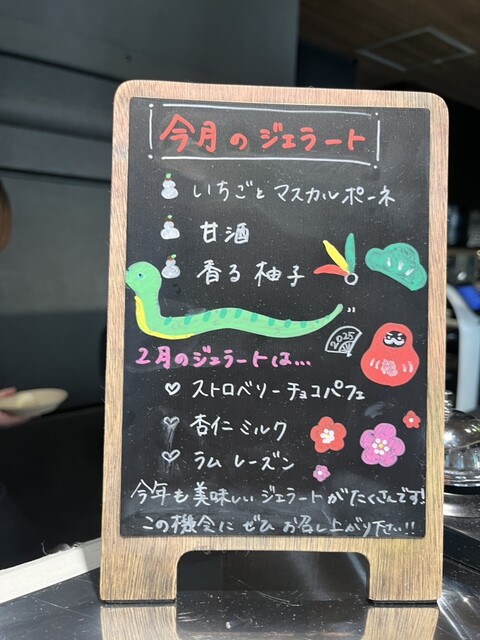 今月のジェラート
いちごとマスカルポーネ
甘酒
香る柚子
2025
2月のジェラートは...
ストロベリーチョコパフェ
杏仁ミルク
ラムレーズン
今年も美味しいジェラートがたくさんです!
この機会にぜひお召し上がり下さい!!